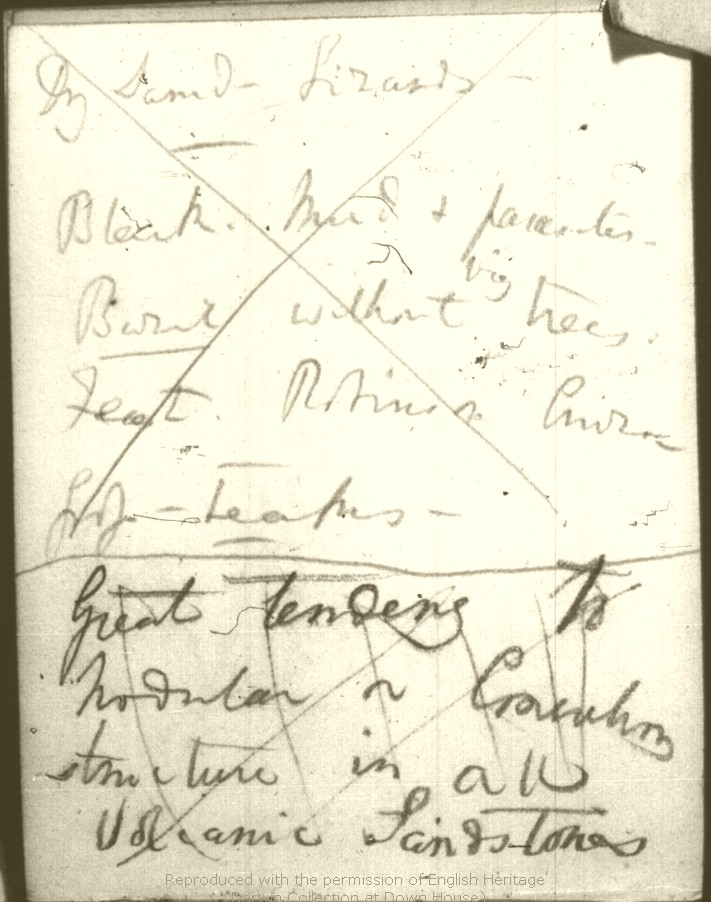 Dry Sand – Lizards –
Bleak. Mud &
big
without trees.
Feast. Robinson Crusoe
– teaks –
Great tendency to
nodular or Concretionary
structure in all
Volcanic Sandstones
Reproduced with the permission of English Heritage
(Darwin Collection at Down House)